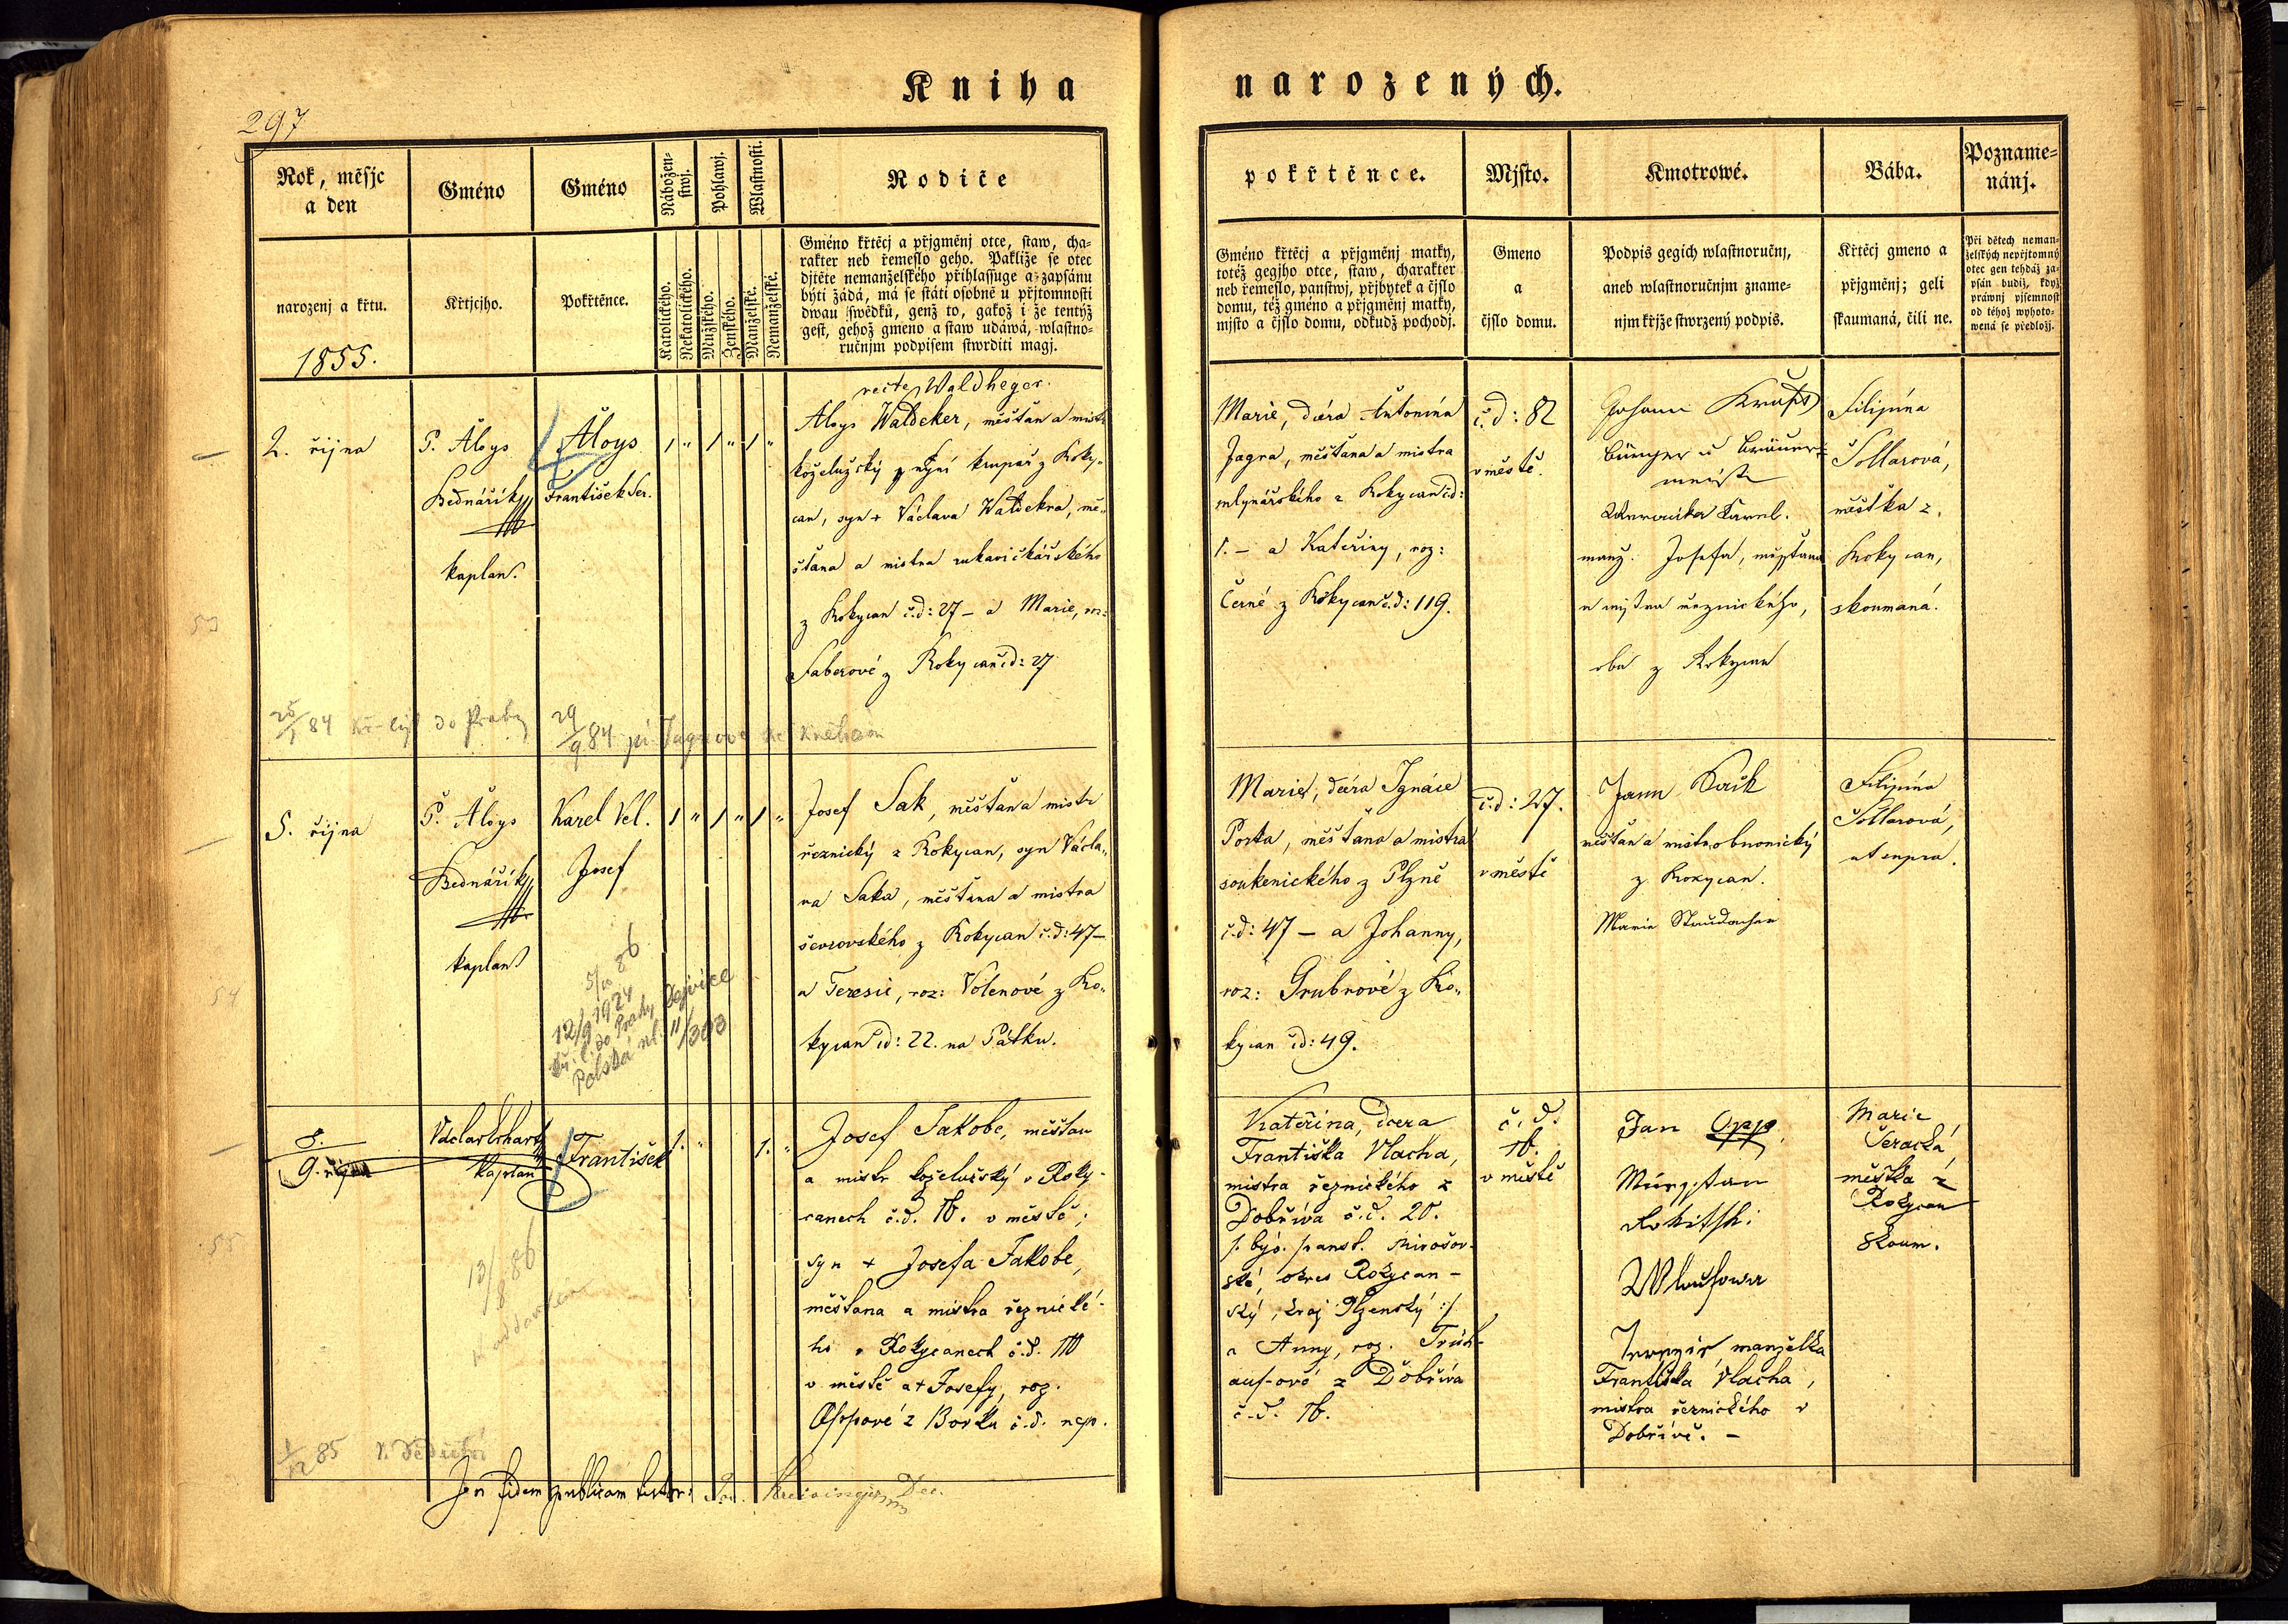 Kniha narozených.
297
Rok, měsjc
a den
Gméno
Gméno
Nábožen-
stwj.
Pohlawj.
Wlastnosti.
Rodiče
narozenj a křtu.
1855.
Křtjcjho.
Pokřtěnce.
Katolického.
Nekatolického.
Mužského.
Ženského.
Manželské.
Nemanželské.
Gméno křtěcj a přjgměnj otce, staw, cha-
rakter neb řemeslo geho. Pakliže se otec
djtěte nemanželského přihlassuge a zapsánu
býti žádá, má se státi osobně u přjtomnosti
dwau swědků, genž to, gakož i že tentýž
gest, gehož gmeno a staw udáwá, wlastno-
ručnjm podpisem stwrditi magj.
pokřtěnce.
Mjsto.
Kmotrowé.
Bába.
Pozname-
nánj.
Gméno křtěcj a přjgměnj matky,
totéž gegjho otce, staw, charakter
neb řemeslo, panstwj, přjbytek a čjslo
domu, též gméno a přjgměnj matky,
mjsto a čjslo domu, odkudž pochodj.
Gmeno
a
čjslo domu.
Podpis gegich wlastnoručnj,
aneb wlastnoručnjm zname-
njm křjže stwrzený podpis.
Křtěcj gmeno a
přjgměnj; geli
skaumaná, čili ne.
Při dětech neman-
želských nepřjtomný
otec gen tehdáž za-
psán budiž, když
práwnj pjsemnost
od téhož wyhoto-
wená se předložj.
2. října
P. Aloys
Bednářík
kaplan.
Aloys
František Ser.
1 " 1 " 1 "
recte Waldheger.
Aloys Waldeker, měšťan a mistr
koželužský nyní krupař z Roky-
can, syn + Václava Waldekra, mě-
šťana a mistra rukavičkářského
z Rokycan č.d: 27 – a Marie, roz:
Faberové z Rokycan čd: 27
Marie, dcéra Antonína
Jagra, měšťana a mistra
mlynářského z Rokycan čd:
1. – a Kateřiny, roz:
Černé z Rokycan č.d: 119.
č.d: 82
v městě.
Johann
Bürger u Bräuer-
meister
Karel.
manž. Josefa, měšťana
a mistra řeznického,
oba z Rokycan
Filipína
Šollarová,
měštka z
Rokycan,
skoumaná.
53
25/1 84 kř. list do Prahy
29/9 84
5. října
P. Aloys
Bednářík
kaplan
Karel Vel.
Josef
1 " 1 " 1 "
Josef Sak, měšťan a mistr
řeznický z Rokycan, syn Václa-
va Saka, měšťana a mistra
ševcovského z Rokycan č.d: 47 –
a Teresie, roz: Volenové z Ro-
kycan čd: 22. na Pátku.
Marie, dcéra Ignáce
Porta, měšťana a mistra
soukenického z Plzně
č.d: 47 – a Johanny,
roz: Grubrové z Ro-
kycan čd: 49.
č.d: 27.
v městě
měšťan a mistr obuvnický
z Rokycan.
Marie
Filipína
Šollarová,
ut supra.
54
86
12/9 1924
kř. l. do Prahy Dejvice
Polská ul. 11/303
8.
9. října
Václav Eckart
kaplan
František
1. " 1. "
Josef Jakobe, měšťan
a mistr koželužský v Roky-
canech č.d. 16. v městě;
syn + Josefa Jakobe,
měšťana a mistra řeznické-
ho v Rokycanech č.d. 110
v městě a + Josefy, roz.
Oppové z Borku č.d. nep.
Kateřina, dcera
Františka Vlacha,
mistra řeznického z
Dobříva č.d. 20.
/: býv. panst. Mirošov-
ské, okres Rokycan-
ský, kraj Plzenský :/
a Anny, roz.
z Dobříva
č.d. 16.
č.d.
16.
v městě
Jan Opp,
manželka
Františka Vlacha,
mistra řeznického v
Dobřívě. –
Marie
Šeracká,
měštka z
Rokycan
skoum.
55
13/8 86
1/12 85
fidem publicam
Dec.